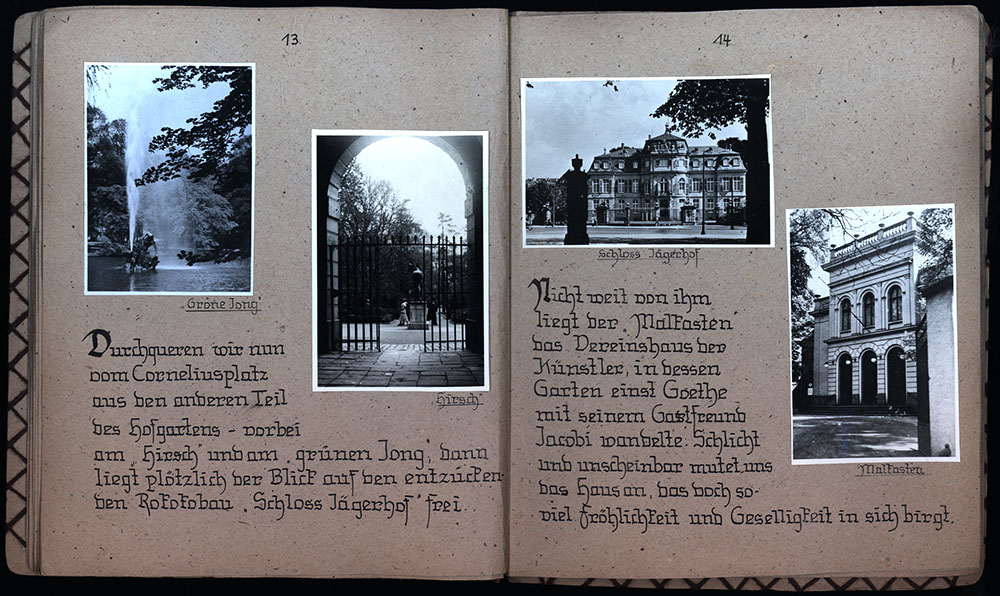 13.
„Gröne Jong”
„Hirsch”
Durchqueren wir nun
vom Corneliusplatz
aus den anderen Teil
des Hofgartens - vorbei
am „Hirsch” und am „grünen Jong”, dann
liegt plötzlich der Blick auf den entzücken-
den Rokokobau „Schloss Jägerhof” frei.
14.
Schloss Jägerhof
Nicht weit von ihm
liegt der „Malkasten”
das Vereinshaus der
Künstler, in dessen
Garten einst Goethe
mit seinem Gastfreund
Jacobi wandelte. Schlicht
und unscheinbar mutet uns
das Haus an, das doch so-
viel Fröhlichkeit und Geselligkeit in sich birgt.
„Malkasten”